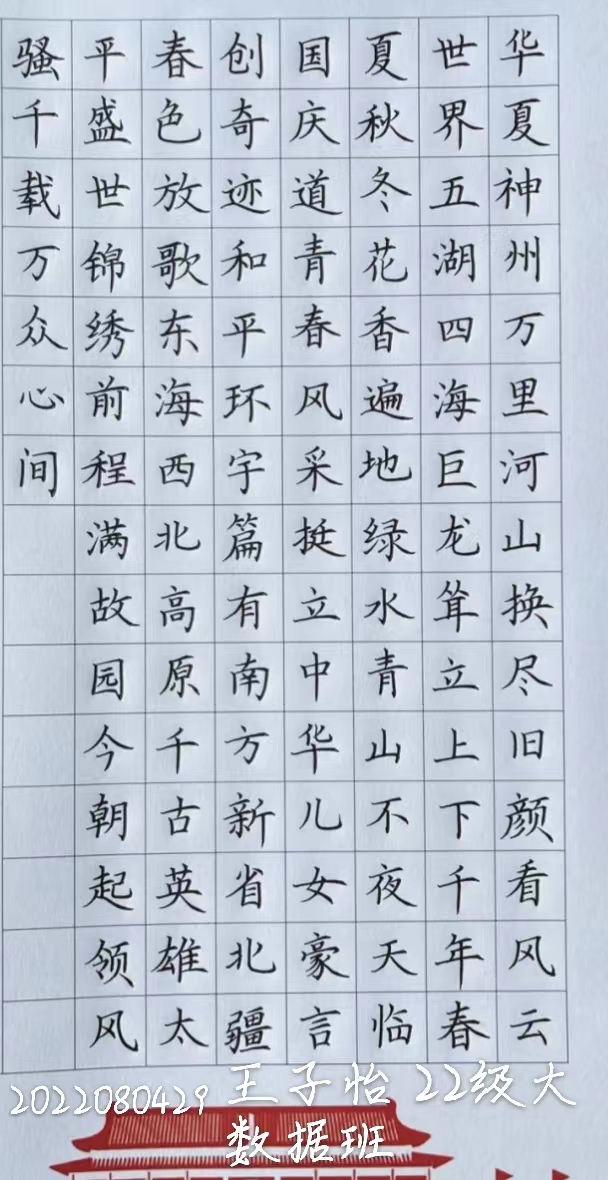 华夏神州万里河山换尽旧颜看风云
世界五湖四海巨龙耸立上下千年春
夏秋冬花香遍地绿水青山不夜天临
国庆道青春风采挺立中华儿女豪言
创奇迹和平环宇篇有南方新省北疆
春色放歌东海西北高原千古英雄太
平盛世锦绣前程满故园今朝起领风
骚千载万众心间
2022080429 王子怡 22级大
数据班